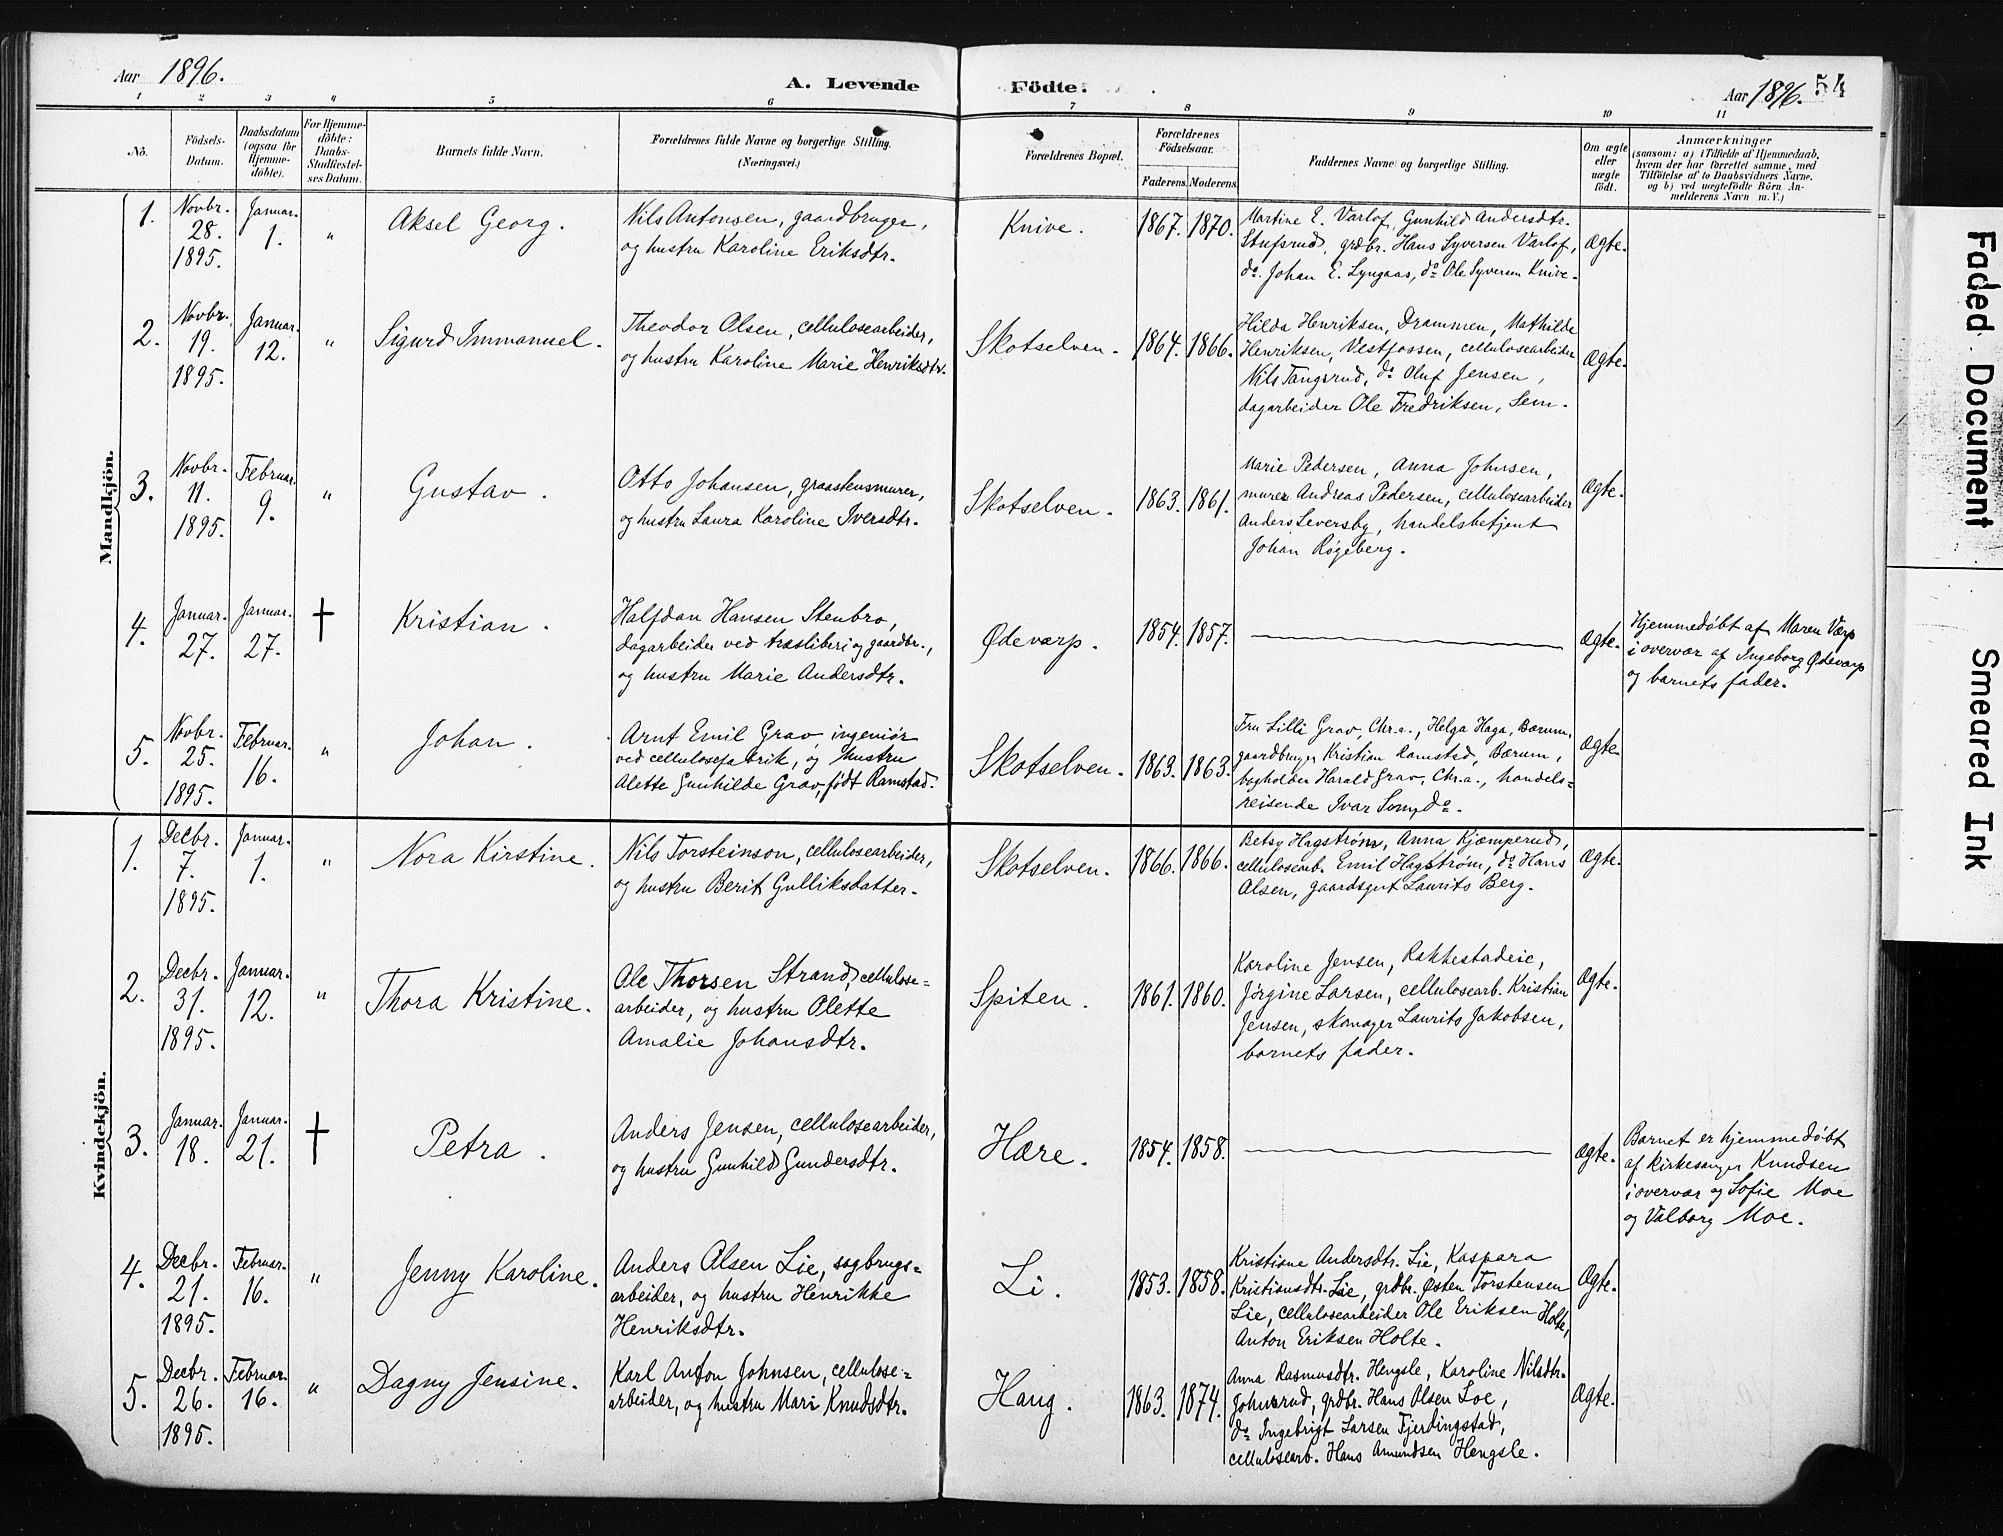 Aar 1896.
A. Levende Födte.
Aar 1896. 54
1 2 3 4 5 6 7 8 9 10 11
No.
Födsels-Datum.
Daabsdatum (ogsaa for Hjemme-döbte).
For Hjemme-döbte: Daabs-Stadfæstel-ses Datum.
Barnets fulde Navn.
Forældrenes fulde Navne og borgerlige Stilling. (Næringsvei.)
Forældrenes Bopæl.
Forældrenes Födselsaar.
Faderens. Moderens.
Faddernes Navne og borgerlige Stilling.
Om ægte eller uægte födt.
Anmærkninger
(saasom: a) i Tilfælde af Hjemmedaab, hvem der har forrettet samme, med Tilföielse af to Daabsvidners Navne, og b) ved uægtefödte Börn An-melderens Navn m. V.)
Mandkjön.
1. Novbr. 28. 1895. Januar. 1. " Aksel Georg.
Nils Antonsen, gaardbruger,
og hustru Karoline Eriksdtr.
Knive. 1867. 1870.
Martine E. Varlof, Gunhild Andersdtr.
Stufsrud, grdbr. Hans Syversen Varlof,
do. Johan E. Lyngaas, do Ole Syversen Knive.
Ægte.
2. Novbr. 19. 1895. Januar. 12. " Sigurd Immanuel.
Theodor Olsen, cellulosearbeider,
og hustru Karoline Marie Henriksdtr.
Skotselven. 1864. 1866.
Hilda Henriksen, Drammen, Mathilde
Henriksen, Vestfossen, cellulosearbeider
Nils Tangsrud, do Oluf Jensen,
dagarbeider Ole Fredriksen, Sem.
Ægte.
3. Novbr. 11. 1895. Februar. 9. " Gustav.
Otto Johansen, graastensmurer,
og hustru Laura Karoline Iversdtr.
Skotselven. 1863. 1861.
Marie Pedersen, Anna Johnsen,
murer Andreas Pedersen, cellulosearbeider
Anders Leversby, handelsbetjent
Johan Røgeberg.
Ægte.
4. Januar. 27. Januar. 27. † Kristian.
Halfdan Hansen Stenbro,
dagarbeider ved træsliberi og gaardbr.,
og hustru Marie Andersdtr.
Ødeværp. 1854. 1857.
Ægte.
Hjemmedøbt af Maren Værp
i overvær af Ingeborg Ødeværp
og barnets fader.
5. Novbr. 25. 1895. Februar. 16. " Johan.
Arnt Emil Grav, ingeniør
ved cellulosefabrik, og hustru
Alette Gunhilde Grav, født Ramstad.
Skotselven. 1863. 1863.
Fru Lilli Grav, Chr.a., Helga Haga, Bærum,
gaardbruger Kristian Ramstad, Bærum,
bogholder Harald Grav, Chr.a., handels=
reisende Ivar Som, do.
Ægte.
Kvindekjön.
1. Decbr. 7. 1895. Januar. 1. " Nora Kirstine.
Nils Torsteinson, cellulosearbeider,
og hustru Berit Gulliksdatter.
Skotselven. 1866. 1866.
Betsy Hagstrøm, Anna Kjæmperud,
cellulosearb. Emil Hagstrøm, do Hans
Olsen, gaardsgut Laurits Berg.
Ægte.
2. Decbr. 31. 1895. Januar. 12. " Thora Kristine.
Ole Thorsen Strand, cellulose=
arbeider, og hustru Olette
Amalie Johansdtr.
Spiten. 1861. 1860.
Karoline Jensen, Rakkestadeie,
Jørgine Larsen, cellulosearb. Kristian
Jensen, skomager Laurits Jakobsen,
barnets fader.
Ægte.
3. Januar. 18. Januar. 21. † Petra.
Anders Jensen, cellulosearbeider,
og hustru Gunhild Gundersdtr.
Hære. 1854. 1858.
Ægte.
Barnet er hjemmedøbt
af kirkesanger Knudsen
i overvær og Sofie Moe
og Valborg Moe.
4. Decbr. 21. 1895. Februar. 16. " Jenny Karoline.
Anders Olsen Lie, sagbrugs=
arbeider, og hustru Henrikke
Henriksdtr.
Li. 1853. 1858.
Kristiane Andersdtr. Lie, Kaspara
Kristiansdtr. Lie, grdbr. Østen Torstensen
Lie, cellulosearbeider Ole Eriksen Holte,
Anton Eriksen Holte.
Ægte.
5. Decbr. 26. 1895. Februar. 16. " Dagny Jensine.
Karl Anton Johnsen, cellulose=
arbeider, og hustru Mari Knudsdtr.
Haug. 1863. 1874.
Anna Rasmusdtr. Hengsle, Karoline Nilsdtr.
Johnsrud, grdbr. Hans Olsen Loe,
do Ingebrigt Larsen Fjerdingstad,
cellulosearb. Hans Amundsen Hengsle.
Ægte.
Faded Document
Smeared Ink